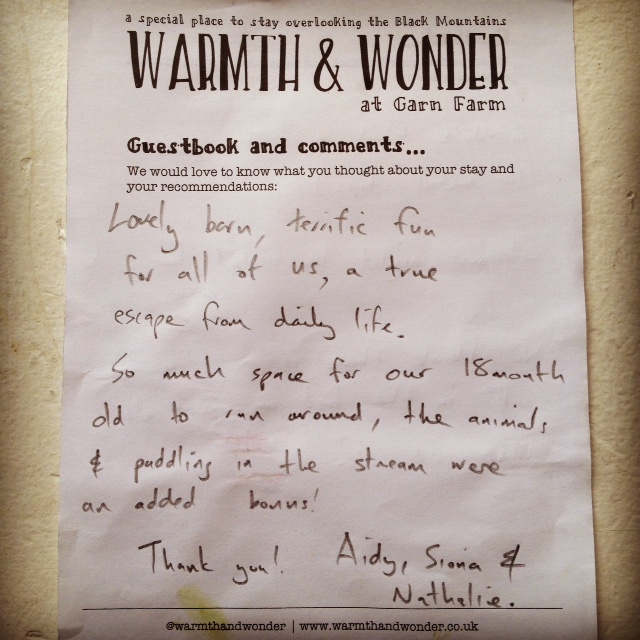 a special place to stay overlooking the Black Mountains
WARMTH & WONDER
at Garn Farm
Guestbook and comments...
We would love to know what you thought about your stay and
your recommendations:
Lovely barn, terrific fun
for all of us, a true
escape from daily life.
So much space for our 18month
old to run around, the animals
& puddling in the stream were
an added bonus!
Thank you! Aidy, Siona &
Nathalie.
@warmthandwonder | www.warmthandwonder.co.uk